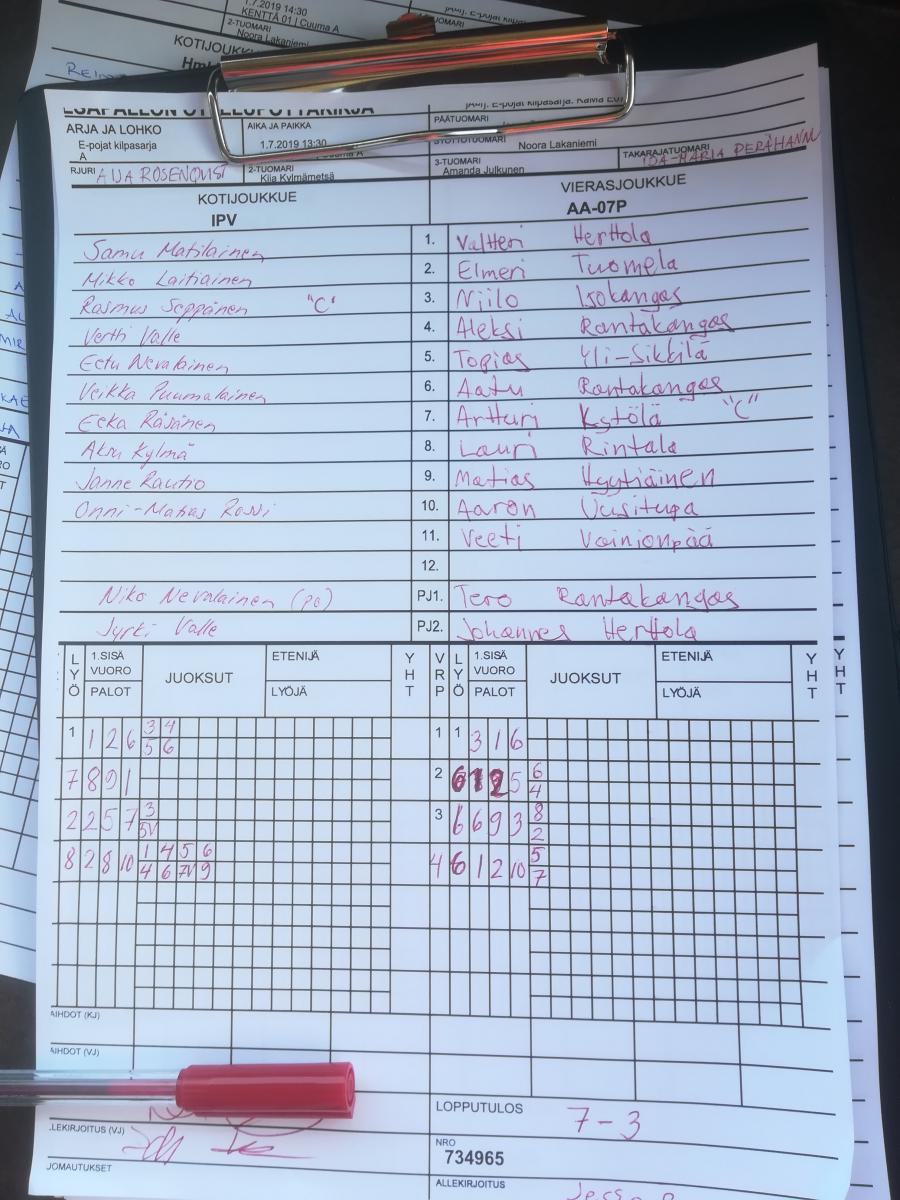 1.7.2019 14:30
KENTTÄ 01 | Cuuma A
2-TUOMARI
Noora Lakaniemi
KOTIJOUKKU
ARJA JA LOHKO
E-pojat kilpasarja
A
AIKA JA PAIKKA
1.7.2019 13:30
PÄÄTUOMARI
SYÖTTÖTUOMARI
Noora Lakaniemi
RJURI AIJA ROSENQVIST
2-TUOMARI
Kiia Kylmämetsä
3-TUOMARI
Amanda Julkunen
TAKARAJATUOMARI
IDA-MARIA PERÄHANNU
KOTIJOUKKUE
IPV
VIERASJOUKKUE
AA-07P
Samu Matilainen 1. Valtteri Herttola
Mikko Laitiainen 2. Elmeri Tuomela
Rasmus Seppänen "C" 3. Niilo Isokangas
Vertti Valle 4. Aleksi Rantakangas
Eetu Nevalainen 5. Topias Yli-Sikkilä
Veikka Puumalainen 6. Aatu Rantakangas
Eeka Räsänen 7. Artturi Kytölä "C"
Aku Kylmä 8. Lauri Rintala
Janne Rautio 9. Matias Hyytiäinen
Onni-Matias Rossi 10. Aaron Uusitupa
11. Veeti Vainionpää
12.
Niko Nevalainen (pg) PJ1. Tero Rantakangas
Jyrki Valle PJ2. Johannes Herttola
LYÖ 1.SISÄ VUORO PALOT JUOKSUT ETENIJÄ LYÖJÄ YHT VRP LYÖ 1.SISÄ VUORO PALOT JUOKSUT ETENIJÄ LYÖJÄ YHT YHT
1 1 2 6 3 4 1 1 3 1 6
5 6
7 8 9 1 2 6 1 2 5 6
4
2 2 5 7 3 3 6 6 9 3 8
5V 2
8 2 8 10 1 4 5 6 4 6 1 2 10 5
4 6 7V 9 7
AIHDOT (KJ)
AIHDOT (VJ)
LOPPUTULOS
7-3
LEKIRJOITUS (VJ)
NRO
734965
JOMAUTUKSET
ALLEKIRJOITUS